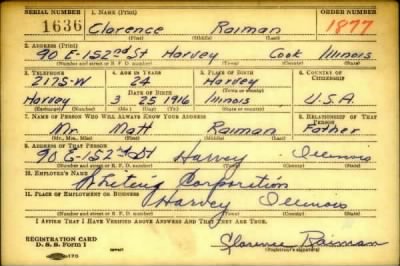 SERIAL NUMBER 1. NAME (Print) ORDER NUMBER
1636 Clarence Raiman 1877
(First) (Middle) (Last)
2. ADDRESS (Print)
90 E-152nd St Harvey Cook Illinois
(Number and street or R. F. D. number) (Town) (County) (State)
3. TELEPHONE 4. AGE IN YEARS 5. PLACE OF BIRTH 6. COUNTRY OF CITIZENSHIP
2175-W 24 Harvey
DATE OF BIRTH (Town or county)
Harvey 3 25 1916 Illinois U.S.A.
(Exchange) (Number) (Mo.) (Day) (Yr.) (State or country)
7. NAME OF PERSON WHO WILL ALWAYS KNOW YOUR ADDRESS 8. RELATIONSHIP OF THAT PERSON
Mr. Matt Raiman Father
(Mr., Mrs., Miss) (First) (Middle) (Last)
9. ADDRESS OF THAT PERSON
90 E-152nd St Harvey Illinois
(Number and street or R. F. D. number) (Town) (County) (State)
10. EMPLOYER'S NAME
Whiting Corporation
11. PLACE OF EMPLOYMENT OR BUSINESS
Harvey Illinois
(Number and street or R. F. D. number) (Town) (County) (State)
I AFFIRM THAT I HAVE VERIFIED ABOVE ANSWERS AND THAT THEY ARE TRUE.
REGISTRATION CARD
D. S. S. Form 1 Clarence Raiman